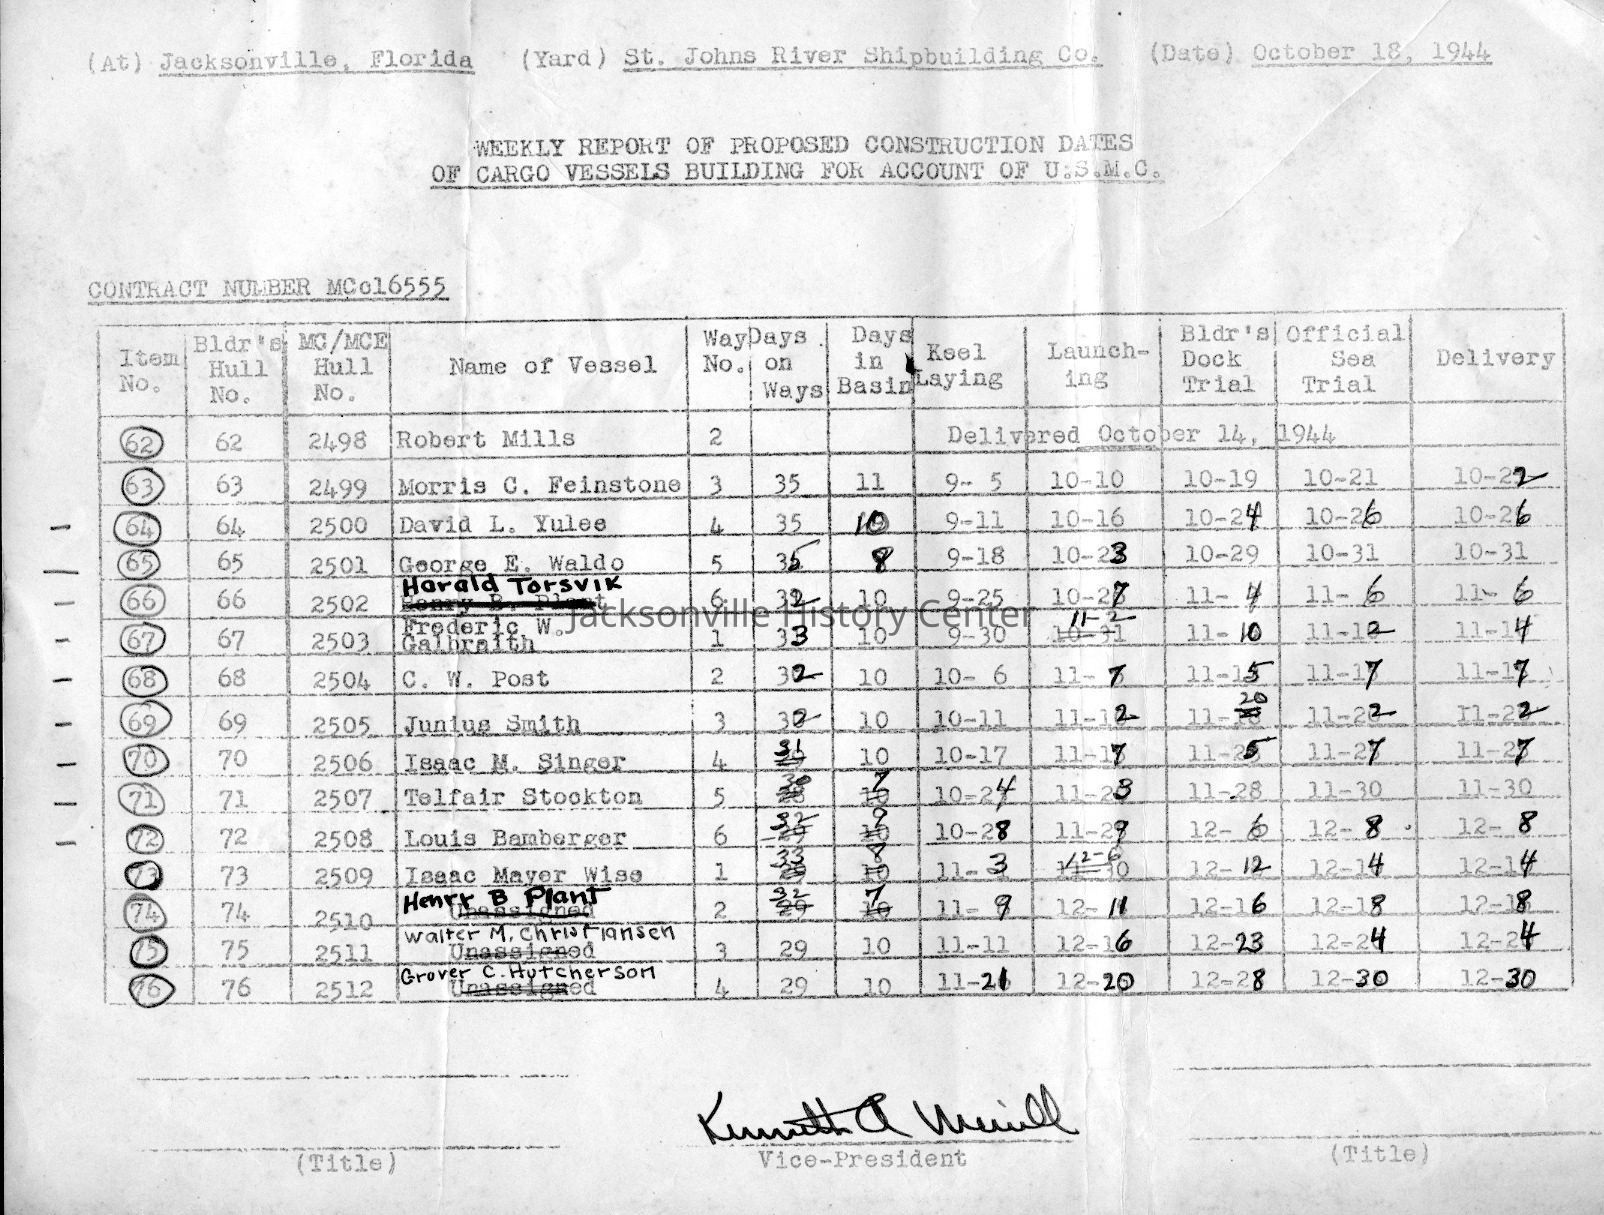 (At) Jacksonville, Florida (Yard) St. Johns River Shipbuilding Co. (Date) October 18, 1944
WEEKLY REPORT OF PROPOSED CONSTRUCTION DATES
OF CARGO VESSELS BUILDING FOR ACCOUNT OF U.S.M.C.
CONTRACT NUMBER MCc16555
Item No. Bldr's Hull No. MC/MCE Hull No. Name of Vessel Way No. Days on Ways Days in Basin Keel Laying Launch-ing Bldr's Dock Trial Official Sea Trial Delivery
62 62 2498 Robert Mills 2 Delivered October 14, 1944
63 63 2499 Morris C. Feinstone 3 35 11 9- 5 10-10 10-19 10-21 10-22
64 64 2500 David L. Yulee 4 35 10 9-11 10-16 10-24 10-26 10-26
65 65 2501 George E. Waldo 5 35 8 9-18 10-23 10-29 10-31 10-31
Harald Torsvik
66 66 2502 Henry B. Plant 6 32 10 9-25 10-27 11- 4 11- 6 11- 6
Jacksonville History Center
11-2
67 67 2503 Frederic W. Galbraith 1 33 10 9-30 10-31 11-10 11-12 11-14
68 68 2504 C. W. Post 2 32 10 10- 6 11- 7 11-15 11-17 11-17
20
69 69 2505 Junius Smith 3 32 10 10-11 11-12 11- 11-22 11-22
70 70 2506 Isaac M. Singer 4 31 10 10-17 11-17 11-25 11-27 11-27
71 71 2507 Telfair Stockton 5 30 7 10 10-24 11-23 11-28 11-30 11-30
72 72 2508 Louis Bamberger 6 32 29 9 10 10-28 11-29 12- 6 12- 8 12- 8
73 73 2509 Isaac Mayer Wise 1 33 8 10 11- 3 12-6 12-12 12-14 12-14
Henry B Plant
74 74 2510 Unassigned 2 32 29 7 10 11- 9 12- 11 12-16 12-18 12-18
Walter M. Christiansen
75 75 2511 Unassigned 3 29 10 11-11 12-16 12-23 12-24 12-24
Grover C. Hutcherson
76 76 2512 Unassigned 4 29 10 11-21 12-20 12-28 12-30 12-30
Kenneth A Merrill
(Title) Vice-President (Title)